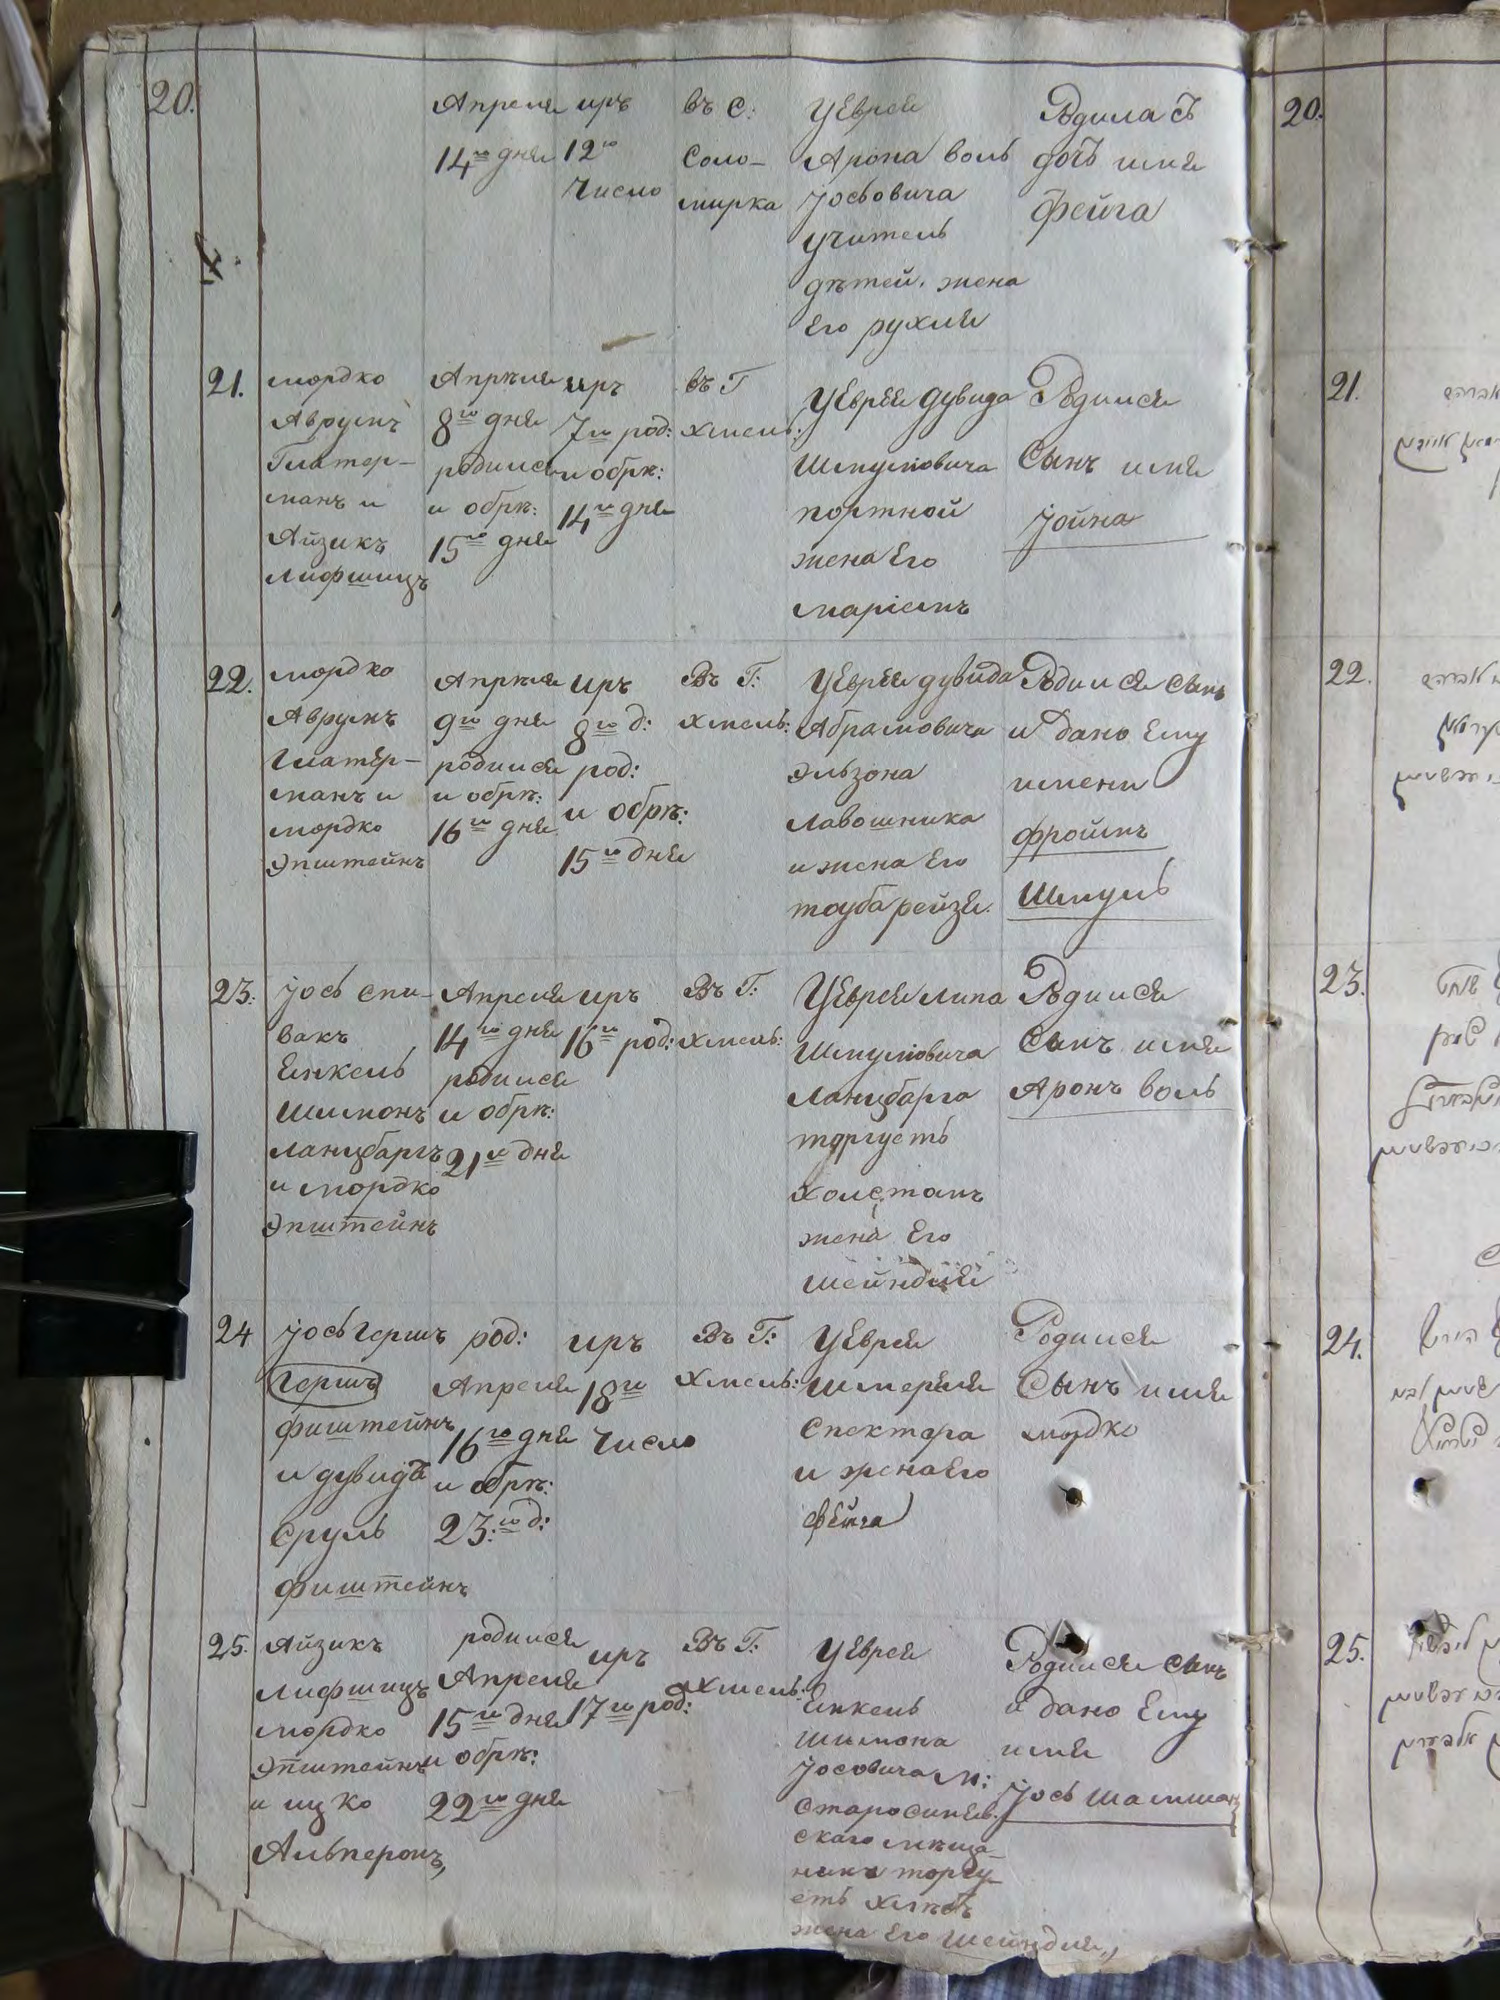 20.
Апреля
14го дня
иръ
12го
Число
въ С:
Соло-
мирка
У Еврея
Арона воль
Јосьовича
учитель
дѣтей. жена
Его рухля
Родиласъ
дочъ имя
Фейга
21.
мордко
Аврумъ
Глатер-
манъ и
Айзикъ
лифшицъ
Апрѣля
8го дня
родился
и обрѣ:
15го дня
иръ
7го род:
и обрѣ:
14го дня
въ Г
хмель:
У Еврея дувида
Шмулiовича
портной
жена Его
марiемъ
Родился
Сынъ имя
Јойна
22.
мордко
Аврумъ
Глатер-
манъ и
мордко
Эпштейнъ
Апрѣля
9го дня
родился
и обрѣ:
16го дня
иръ
8го д:
род:
и обрѣ:
15го дня
Въ Г:
хмель:
У Еврея дувида
Абрамовича
эльзона
лавошника
и жена Его
тоуба рейзя.
Родился Сынъ
и дано Ему
имени
фроимъ
Шмуль
23.
Јось спи-
вакъ
Енкель
Шимонъ
ланцбаргъ
и мордко
Эпштейнъ
Апреля
14го дня
родился
и обрѣ:
21го дня
иръ
16го род:
Въ Г:
хмель:
У Еврея липа
Шмулiовича
Ланцбарга
торгуетъ
холстамъ
жена Его
шейндля
Родился
Сынъ имя
Аронъ воль
24
Јось Гершъ
Гершъ
фиштейнъ
и дувидъ
Сруль
фиштейнъ
род:
Апреля
16го дня
и обрѣ:
23:го д:
иръ
18го
Число
Въ Г:
Хмель:
У Еврея
Шмерля
Спектора
и жена Его
фейга
Родился
Сынъ имя
мордко
25.
Айзикъ
лифшицъ
мордко
Эпштейнъ
и ицко
Альперонъ,
родился
Апреля
15го дня
и обрѣ:
22го дня
иръ
17го род:
Въ Г:
хмель:
У Еврея
Енкель
Шимона
Јосовича м:
старосиняв.
скаго мѣща-
нина торгу-
етъ хлѣбъ
жена Его Шейндля,,
Родился Сынъ
и дано Ему
имя
Јось Шамшон
20.
21.
22.
23.
24.
25.